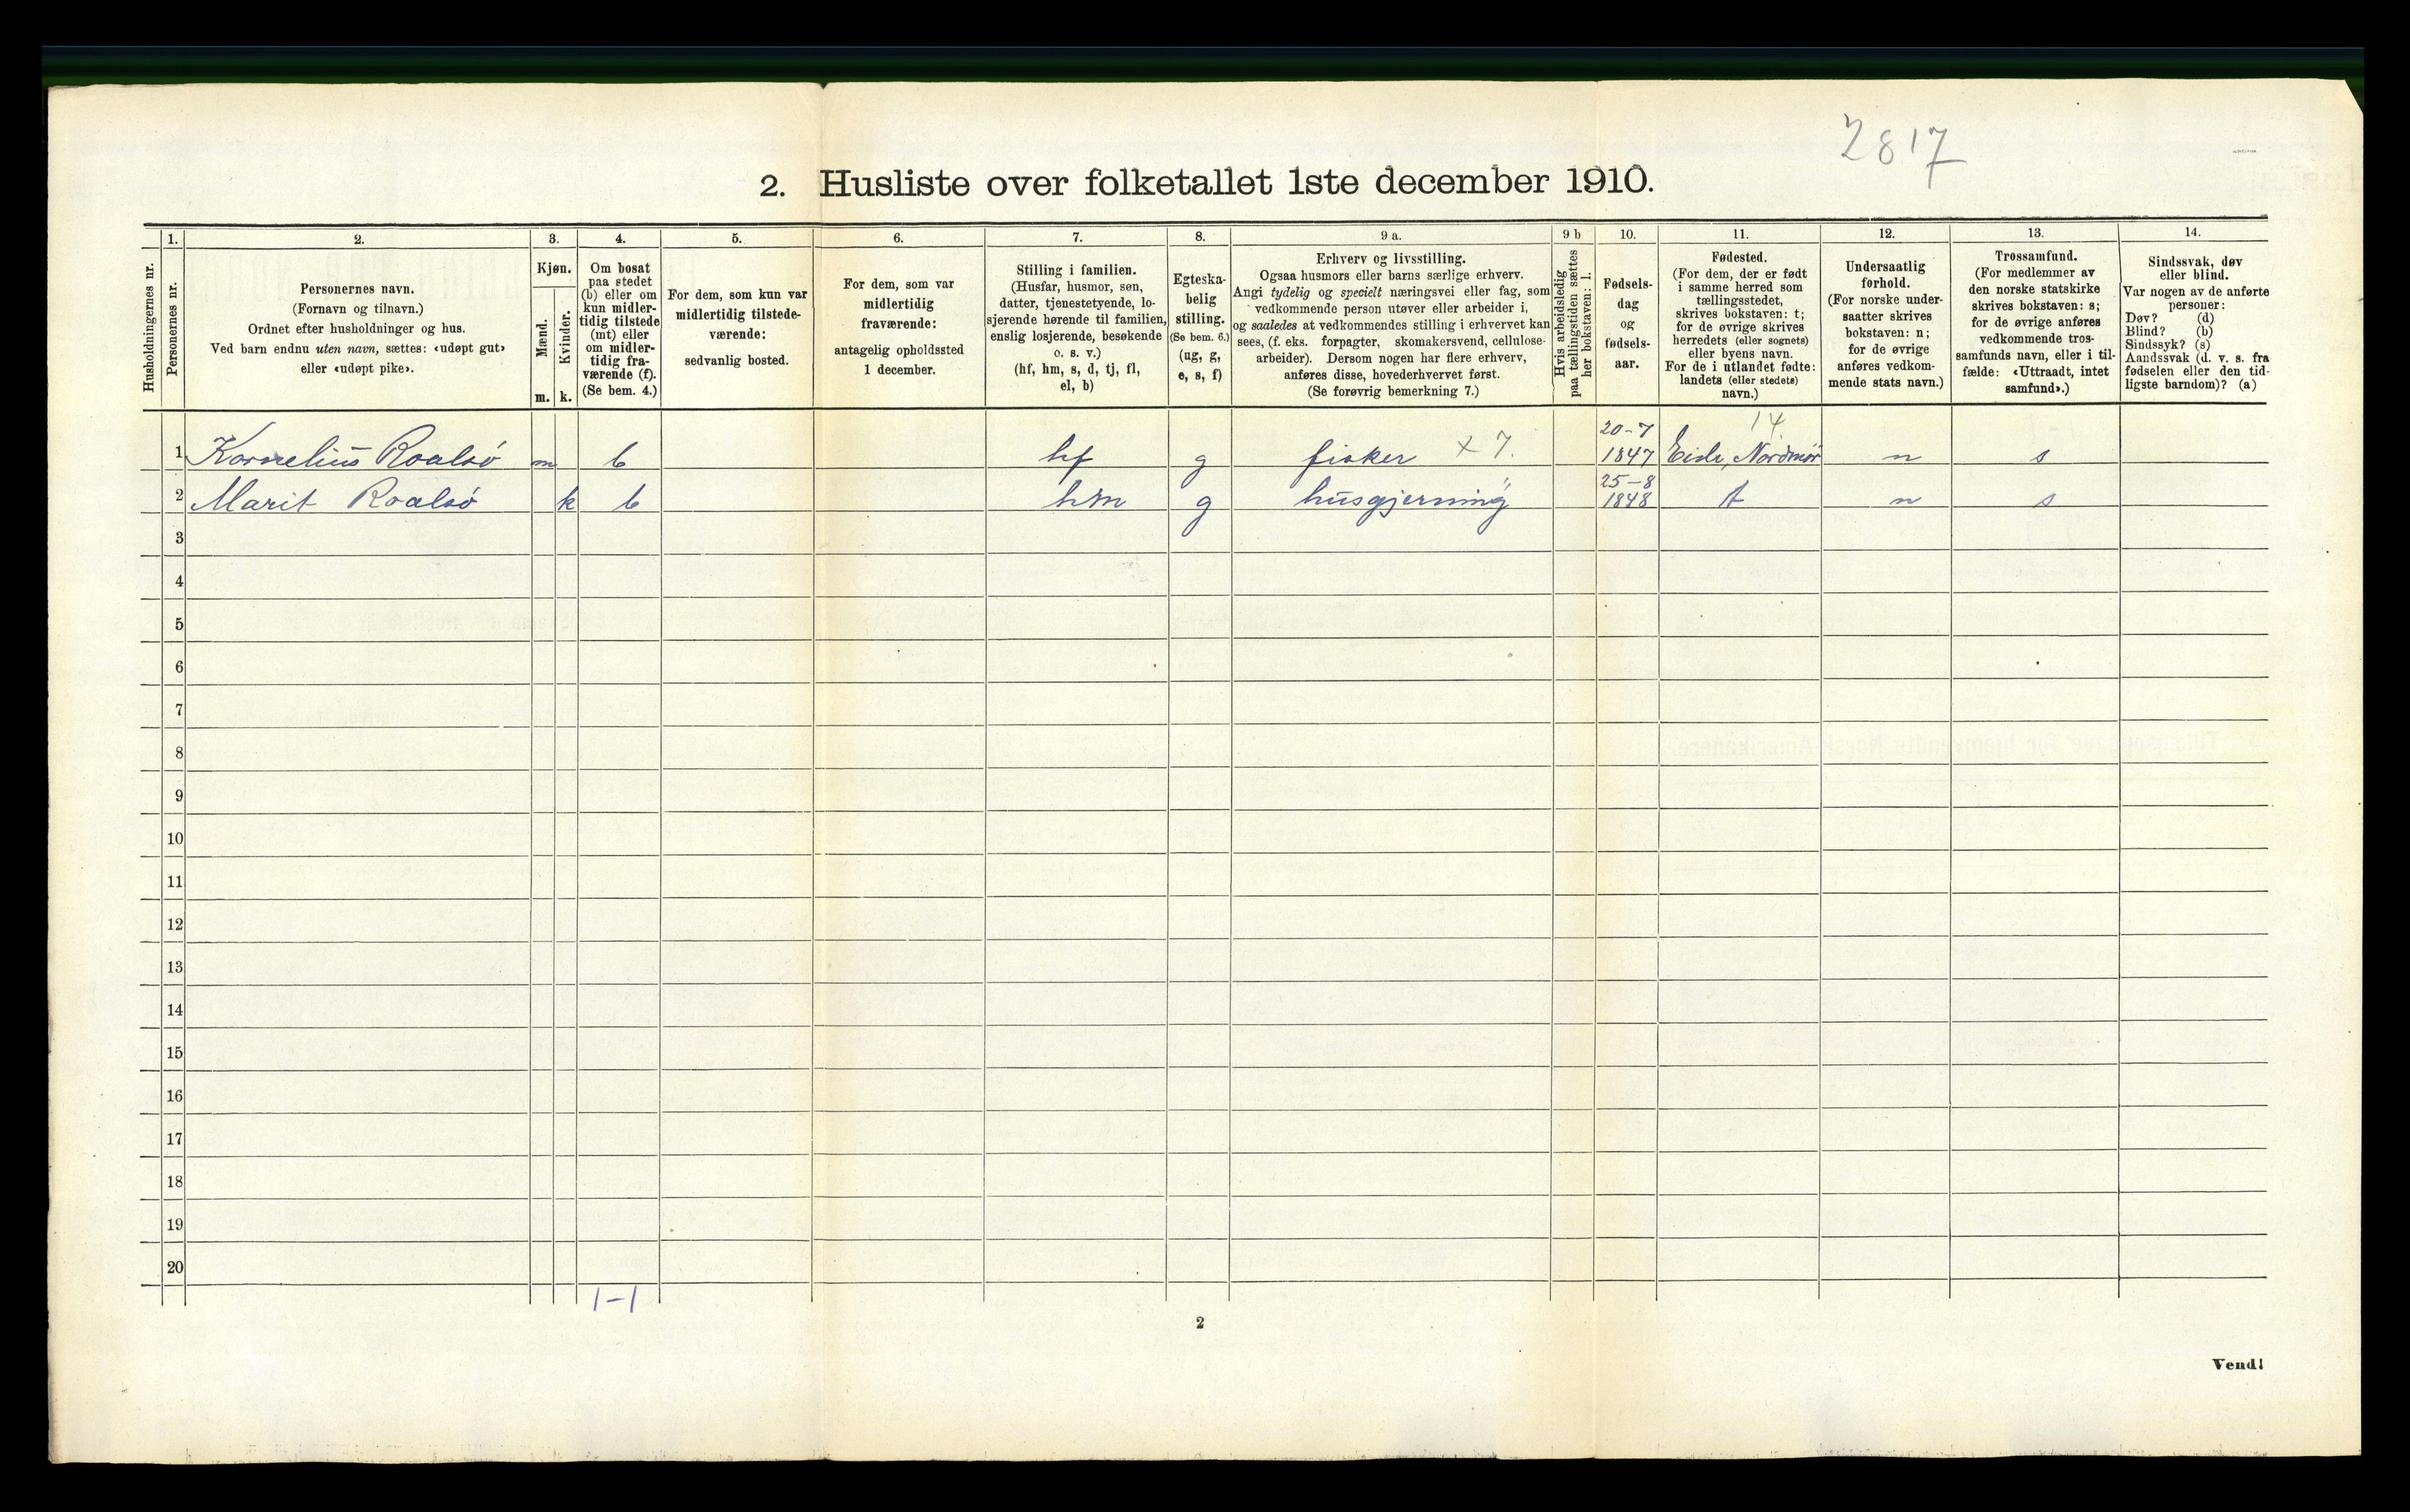 2817
2. Husliste over folketallet 1ste december 1910.
Husholdningernes nr.
1.
Personernes nr.
2.
Personernes navn.
(Fornavn og tilnavn.)
Ordnet efter husholdninger og hus.
Ved barn endnu uten navn, sættes: «udøpt gut»
eller «udøpt pike».
3.
Kjøn.
Mænd.
Kvinder.
m. k.
4.
Om bosat
paa stedet
(b) eller om
kun midler-
tidig tilstede
(mt) eller
om midler-
tidig fra-
værende (f).
(Se bem. 4.)
5.
For dem, som kun var
midlertidig tilstede-
værende:
sedvanlig bosted.
6.
For dem, som var
midlertidig
fraværende:
antagelig opholdssted
1 december.
7.
Stilling i familien.
(Husfar, husmor, søn,
datter, tjenestetyende, lo-
sjerende hørende til familien,
enslig losjerende, besøkende
o. s. v.)
(hf, hm, s, d, tj, fl,
el, b)
8.
Egteska-
belig
stilling.
(Se bem. 6.)
(ug, g,
e, s, f)
9 a.
Erhverv og livsstilling.
Ogsaa husmors eller barns særlige erhverv.
Angi tydelig og specielt næringsvei eller fag, som
vedkommende person utøver eller arbeider i,
og saaledes at vedkommendes stilling i erhvervet kan
sees, (f. eks. forpagter, skomakersvend, cellulose-
arbeider). Dersom nogen har flere erhverv,
anføres disse, hovederhvervet først.
(Se forøvrig bemerkning 7.)
9 b
Hvis arbeidsledig
paa tællingstiden sættes
her bokstaven: l.
10.
Fødsels-
dag
og
fødsels-
aar.
11.
Fødested.
(For dem, der er født
i samme herred som
tællingsstedet,
skrives bokstaven: t;
for de øvrige skrives
herredets (eller sognets)
eller byens navn.
For de i utlandet fødte:
landets (eller stedets)
navn.)
12.
Undersaatlig
forhold.
(For norske under-
saatter skrives
bokstaven: n;
for de øvrige
anføres vedkom-
mende stats navn.)
13.
Trossamfund.
(For medlemmer av
den norske statskirke
skrives bokstaven: s;
for de øvrige anføres
vedkommende tros-
samfunds navn, eller i til-
fælde: «Uttraadt, intet
samfund».)
14.
Sindssvak, døv
eller blind.
Var nogen av de anførte
personer:
Døv? (d)
Blind? (b)
Sindssyk? (s)
Aandssvak (d. v. s. fra
fødselen eller den tid-
ligste barndom)? (a)
14
1 Kornelius Roalsø m b hf g fisker x 7. 20-7 1847 Nordmør n s
2 Marit Roalsø k b hm g husgjerning 25-8 1848 t n s
3
4
5
6
7
8
9
10
11
12
13
14
15
16
17
18
19
20
1-1
2
Vend!